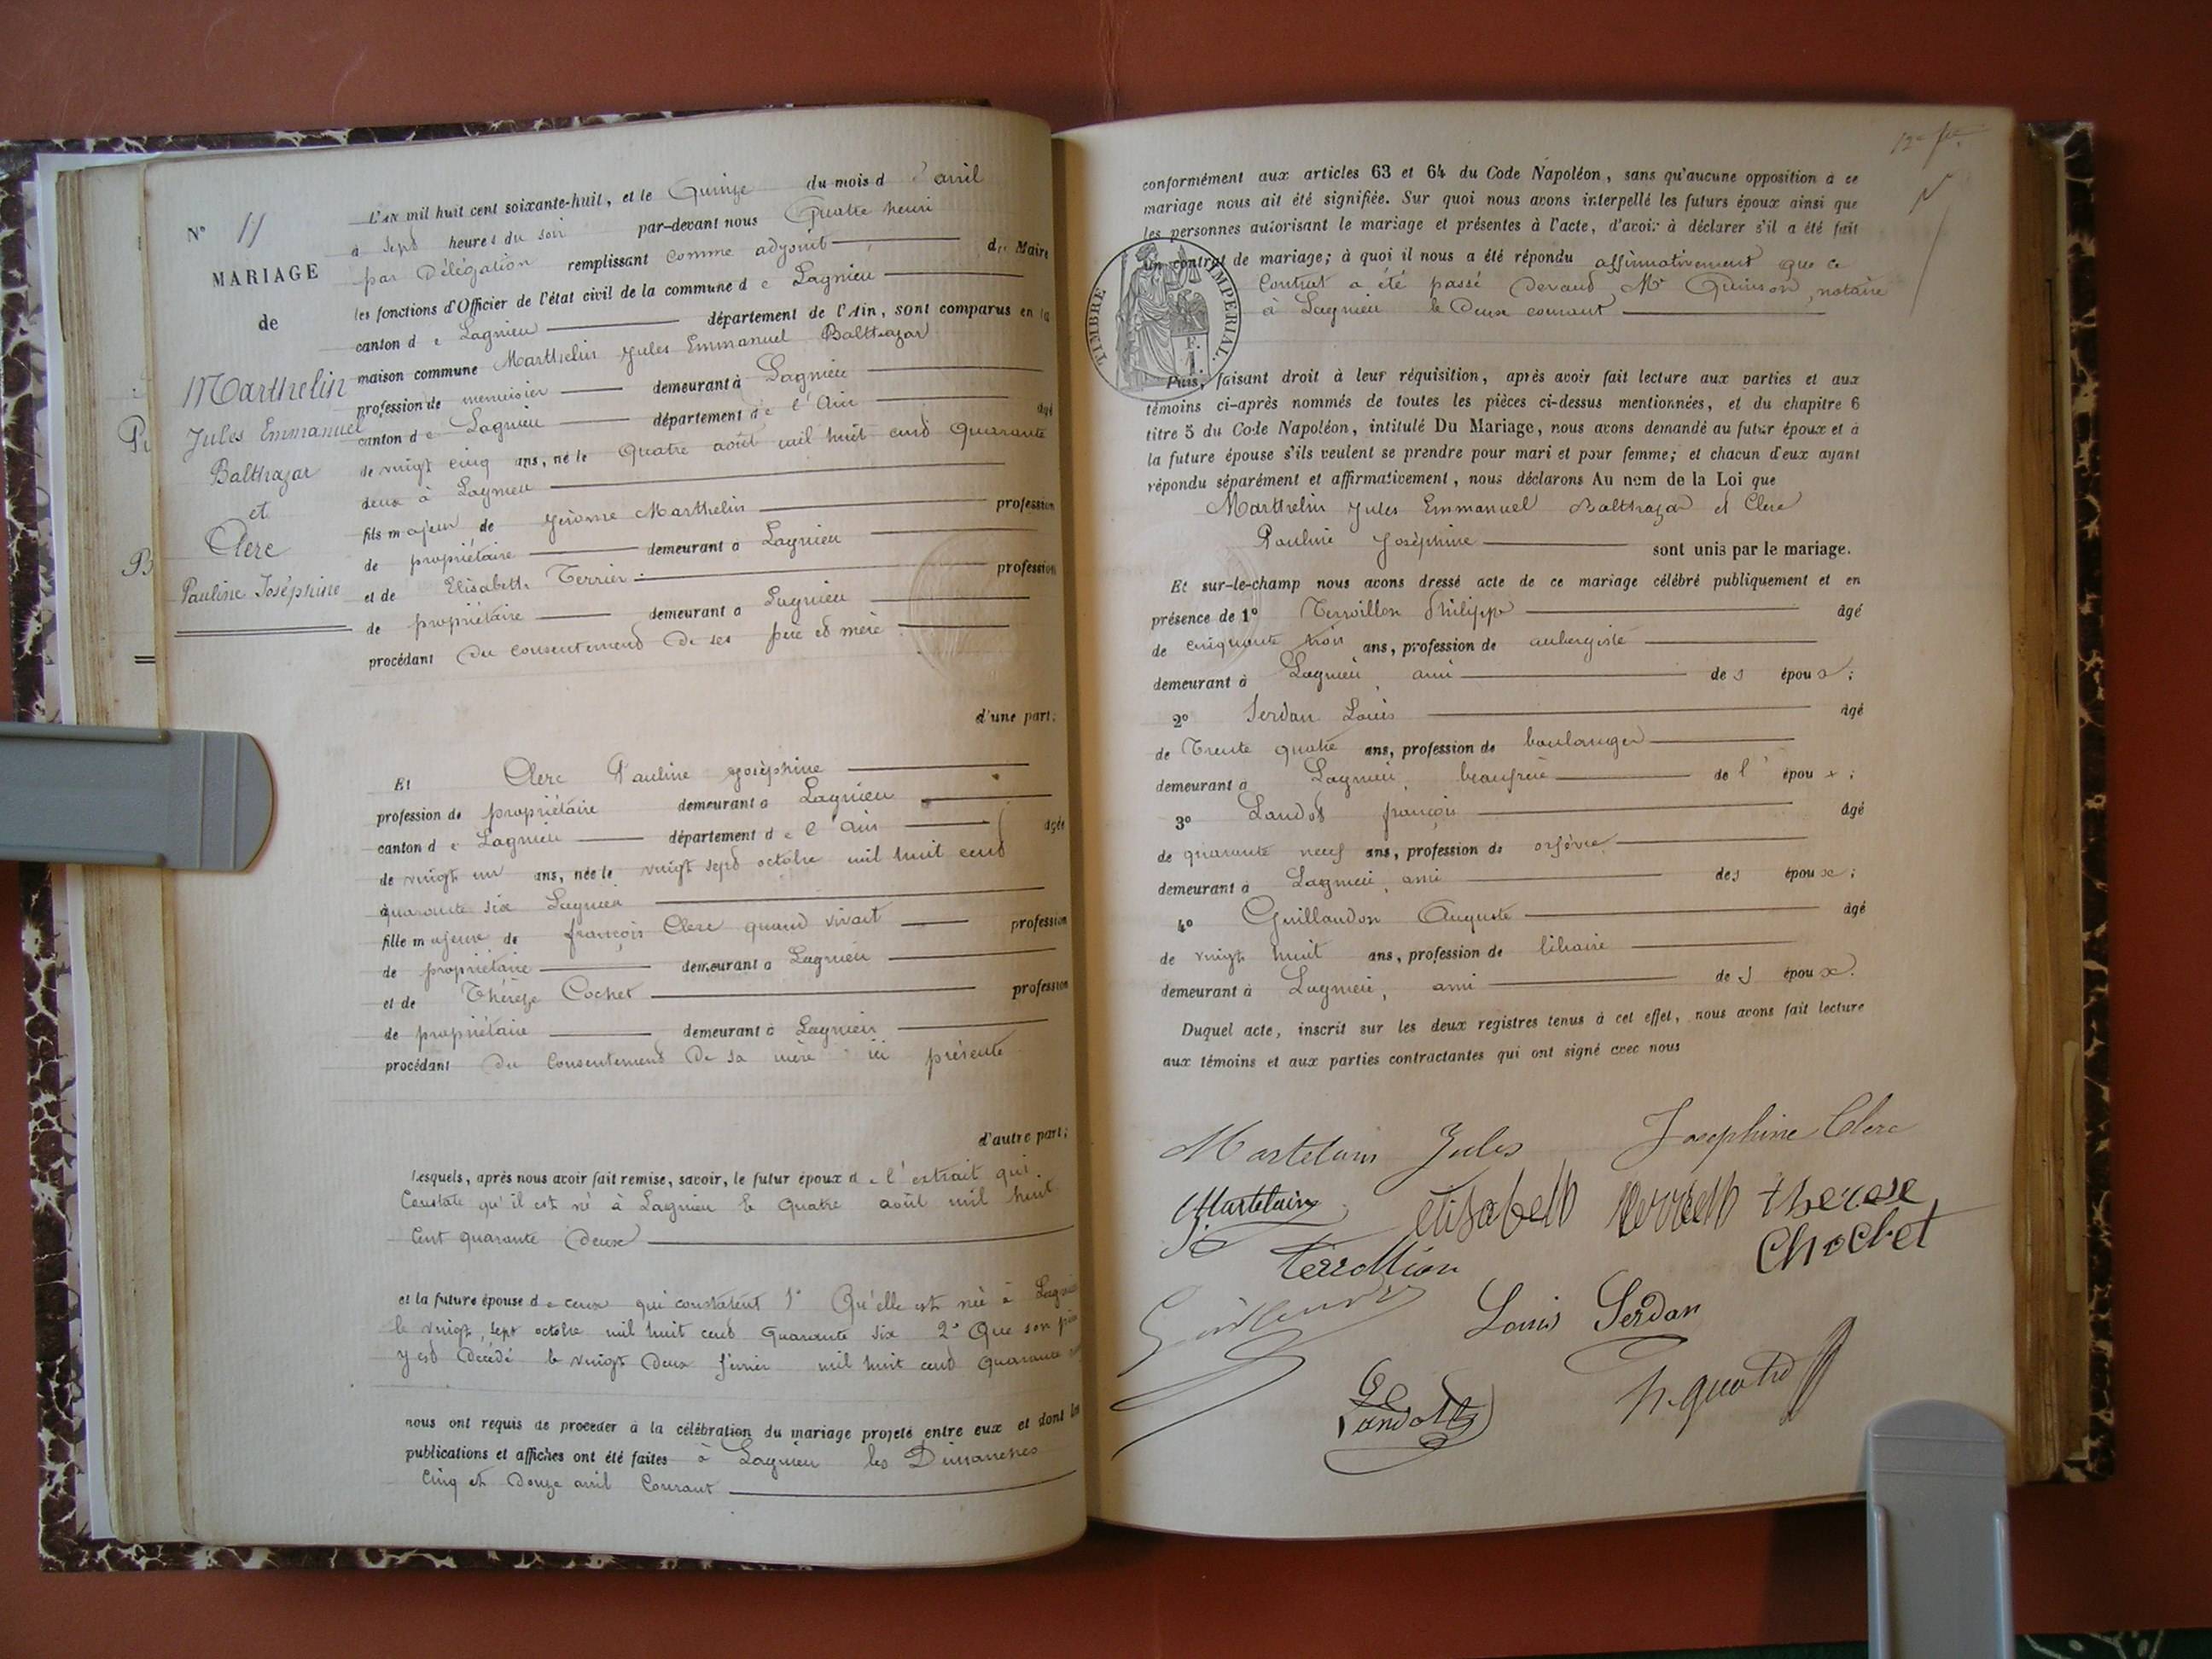 N° 11
MARIAGE
de
Marthelin
Jules Emmanuel
Balthazar
et
Clerc
Pauline Joséphine
L'AN mil huit cent soixante-huit, et le Quinze du mois d'avril
à sept heures du soir par-devant nous Quatre henri
par Délégation remplissant comme adjoint des Maire
les fonctions d'Officier de l'état civil de la commune de Lagnieu
canton de Lagnieu département de l'Ain, sont comparus en la
maison commune Marthelin Jules Emmanuel Balthazar
profession de menuisier demeurant à Lagnieu
canton de Lagnieu département de l'Ain âgé
de vingt cinq ans, né le Quatre août mil huit cent Quarante
deux à Lagnieu
fils majeur de Jérome Marthelin profession
de propriétaire demeurant à Lagnieu
et de Elisabeth Terrier profession
de propriétaire demeurant à Lagnieu
procédant du consentement de ses père et mère
d'une part;
Et Clerc Pauline Joséphine
profession de propriétaire demeurant à Lagnieu
canton de Lagnieu département de l'Ain âgée
de vingt un ans, née le vingt sept octobre mil huit cent
quarante six à Lagnieu
fille majeure de françois Clerc quand vivait profession
de propriétaire demeurant à Lagnieu
et de Thérèze Cochet profession
de propriétaire demeurant à Lagnieu
procédant du Consentement de sa mère ici présente
d'autre part;
Lesquels, après nous avoir fait remise, savoir, le futur époux de l'extrait qui
Constate qu'il est né à Lagnieu le Quatre août mil huit
Cent quarante Deux
et la future épouse de ceux qui constatent 1° Qu'elle est née à Lagnieu
le vingt sept octobre mil huit cent Quarante six 2° Que son père
y est Décédé le vingt Deux février mil huit cent Quarante
nous ont requis de procéder à la célébration du mariage projeté entre eux et dont les
publications et affiches ont été faites à Lagnieu les Dimanches
Cinq et Douze avril Courant
conformément aux articles 63 et 64 du Code Napoléon, sans qu'aucune opposition à ce
mariage nous ait été signifiée. Sur quoi nous avons interpellé les futurs époux ainsi que
les personnes autorisant le mariage et présentes à l'acte, d'avoir à déclarer s'il a été fait
un contrat de mariage; à quoi il nous a été répondu affirmativement que ce
Contrat a été passé Devant Me Quinson, notaire
à Lagnieu le Deux courant
TIMBRE IMPÉRIAL
1 F.
Puis, faisant droit à leur réquisition, après avoir fait lecture aux parties et aux
témoins ci-après nommés de toutes les pièces ci-dessus mentionnées, et du chapitre 6
titre 5 du Code Napoléon, intitulé Du Mariage, nous avons demandé au futur époux et à
la future épouse s'ils veulent se prendre pour mari et pour femme; et chacun d'eux ayant
répondu séparément et affirmativement, nous déclarons Au nom de la Loi que
Marthelin Jules Emmanuel Balthazar et Clerc
Pauline Joséphine sont unis par le mariage.
Et sur-le-champ nous avons dressé acte de ce mariage célébré publiquement et en
présence de 1° Terroillon Philippe âgé
de cinquante trois ans, profession de aubergiste
demeurant à Lagnieu, ami des époux;
2° Serdan Louis âgé
de Trente quatre ans, profession de boulanger
demeurant à Lagnieu, beaufrère de l'époux;
3° Landot françois âgé
de quarante neuf ans, profession de orfèvre
demeurant à Lagnieu, ami des époux;
4° Guillaudon Auguste âgé
de vingt huit ans, profession de libraire
demeurant à Lagnieu, ami des époux.
Duquel acte, inscrit sur les deux registres tenus à cet effet, nous avons fait lecture
aux témoins et aux parties contractantes qui ont signé avec nous
Martelain Jules Josephine Clerc
Martelain elisabeth therese
chochet
terrollion
Louis Serdan
Landot h. quatre